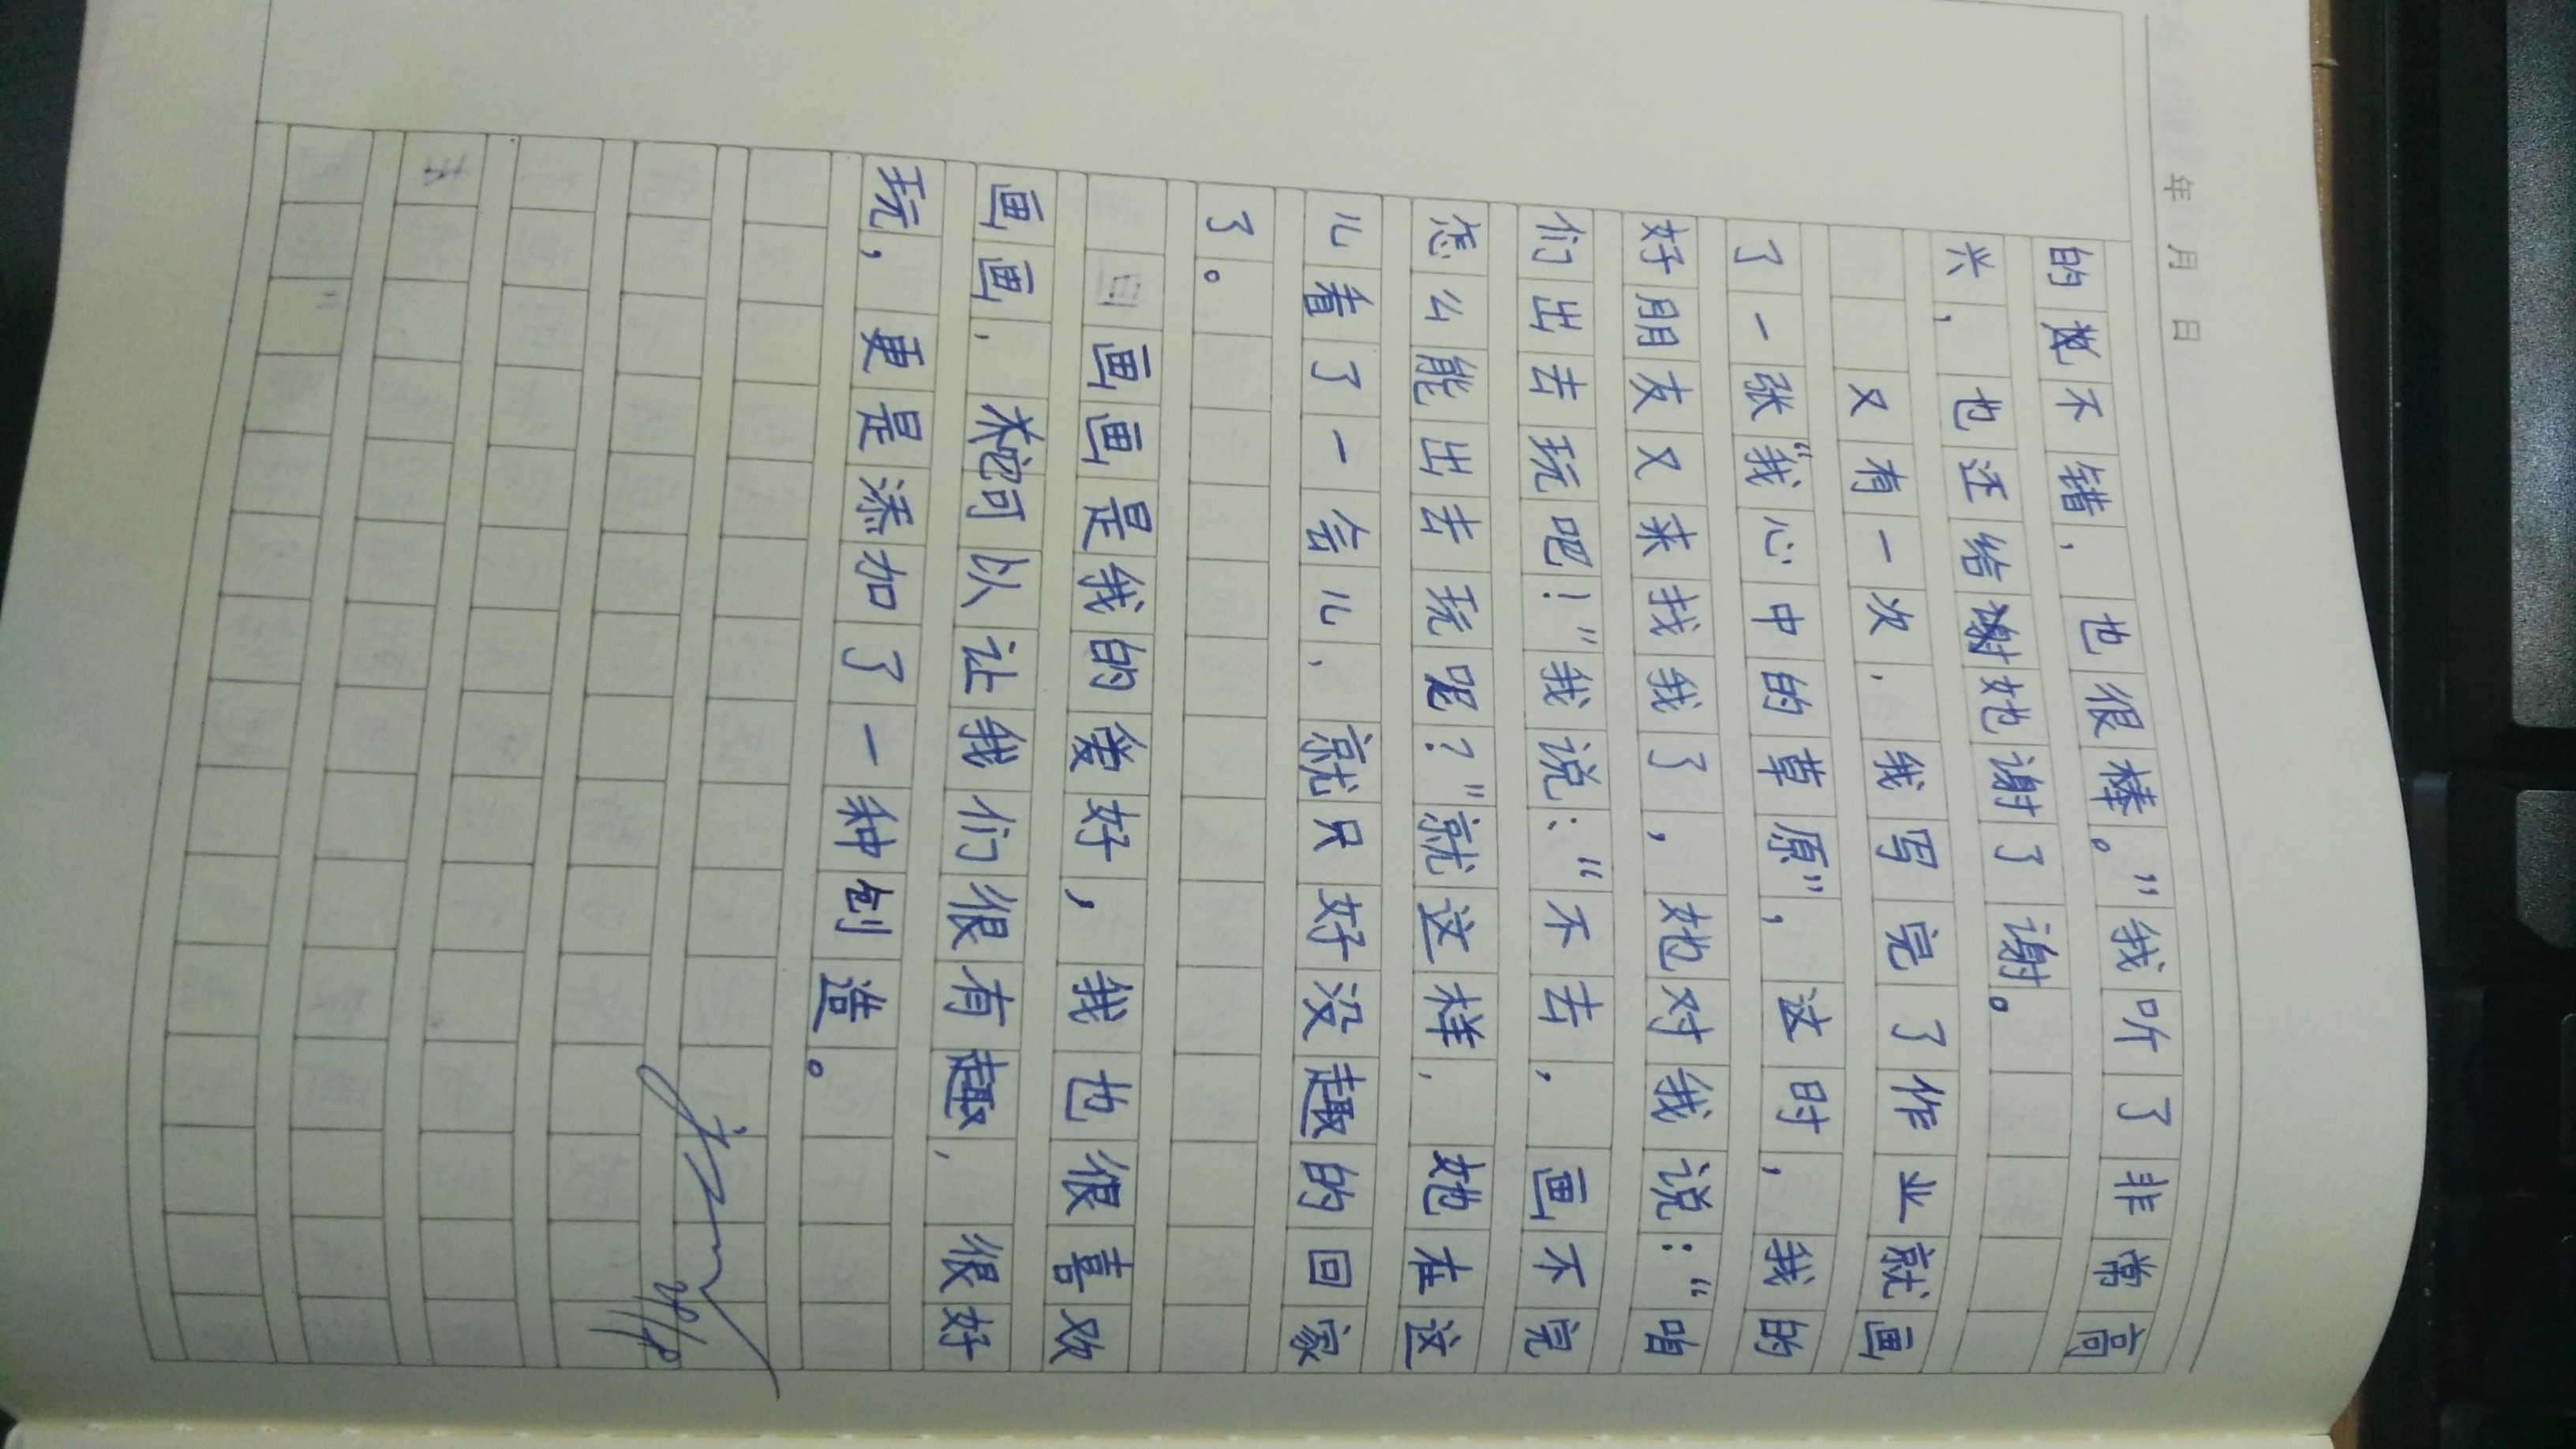 年 月 日
的不错，也很棒。”我听了非常高
兴，也还给她谢了谢。
又有一次，我写完了作业就画
了一张“我心中的草原”，这时，我的
好朋友又来找我了，她对我说：“咱
们出去玩吧！”我说：“不去，画不完
怎么能出去玩呢？”就这样，她在这
儿看了一会儿，就只好没趣的回家
了。
画画是我的爱好，我也很喜欢
画画，它可以让我们很有趣，很好
玩，更是添加了一种创造。